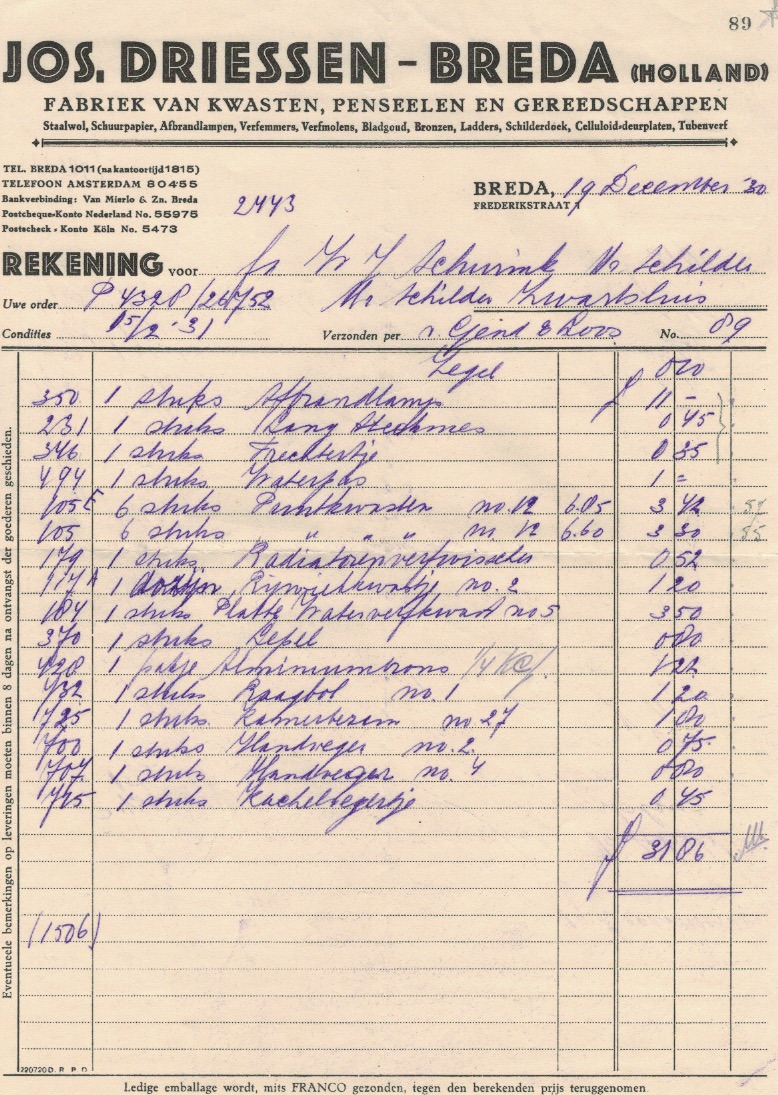 89
JOS. DRIESSEN - BREDA (HOLLAND)
FABRIEK VAN KWASTEN, PENSEELEN EN GEREEDSCHAPPEN
Staalwol, Schuurpapier, Afbrandlampen, Verfemmers, Verfmolens, Bladgoud, Bronzen, Ladders, Schilderdoek, Celluloid-deurplaten, Tubenverf
TEL. BREDA 1011 (na kantoortijd 1815)
TELEFOON AMSTERDAM 80455
Bankverbinding: Van Mierlo & Zn. Breda
Postcheque-Konto Nederland No. 55975
Postscheck-Konto Köln No. 5473
2443
BREDA, 19 December '30
FREDERIKSTRAAT
REKENING voor W J Schurink Mr Schilder
Uwe order P 4328 / 26752 Mr Schilder Zwartsluis
Condities 15/2 '31 Verzonden per v. Gend & Loos No. 89
Zegel 0 10
350 1 stuks Afbrandlamp f 11 -
231 1 stuks Lang Steekmes 0 45
346 1 stuks Trechtertje 0 35
494 1 stuks Waterpas 1 =
105 E 6 stuks Puntkwasten no. 12 6.85 3 42
105 6 stuks " " " no. 12 6.60 3 30
179 1 stuks Radiatorenverfwisscher 0 52
117 A 1 Rijwielkwastje no. 2 1 20
184 1 stuks Platte Waterverfkwast no 5 3 50
370 1 stuks Lepel 0 80
428 1 pakje Alminiumbrons 1/4 KG. 1 22
432 1 stuks Raagbol no. 1 1 20
725 1 stuks Kamerbezem no 27 1 80
700 1 stuks Handveger no. 2 0 75
707 1 stuks Handveeger no. 4 0 80
1 stuks Kachelvegertje 0 45
f 31 86
(1506)
Eventueele bemerkingen op leveringen moeten binnen 8 dagen na ontvangst der goederen geschieden.
220720 D. R. P. D
Ledige emballage wordt, mits FRANCO gezonden, tegen den berekenden prijs teruggenomen.